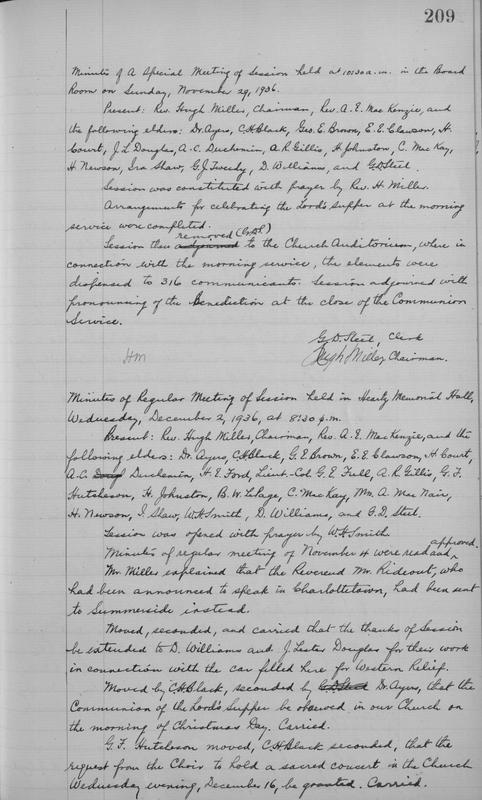 209
Minutes of A Special Meeting of Session held at 10:30 a.m. in the Board
Room on Sunday, November 29, 1936.
Present: Rev. Hugh Miller, Chairman, Rev. A. E. MacKenzie, and
the following elders: Dr. Ayers, C.H. Black, Geo. E. Brown, E. E. Clawson, H.
Court, J. L. Douglas, A. C. Duchemin, A. R. Gillis, H. Johnston, C. MacKay,
H. Newson, Ira Shaw, G. J. Tweedy, D. Williams, and G. D. Steel.
Session was constituted with prayer by Rev. H. Miller.
Arrangements for celebrating the Lord's Supper at the morning
service were completed.
removed (G.D.S.)
Session then adjourned to the Church Auditorium, where in
connection with the morning service, the elements were
dispensed to 316 communicants. Session adjourned with
pronouncing of the Benediction at the close of the Communion
Service.
G. D. Steel, Clerk
HM Hugh Miller, Chairman.
Minutes of Regular Meeting of Session held in Heartz Memorial Hall,
Wednesday, December 2, 1936, at 8:30 p.m.
Present: Rev. Hugh Miller, Chairman, Rev. A. E. MacKenzie, and the
following elders: Dr. Ayers, C.H. Black, G. E. Brown, E. E. Clawson, H. Court,
A. C. Duchemin, H. E. Ford, Lieut-Col. G. E. Full, A. R. Gillis, G. F.
Hutcheson, H. Johnston, B. W. LePage, C. MacKay, Wm. A. MacNair,
H. Newson, I. Shaw, W. H. Smith, D. Williams, and G. D. Steel.
Session was opened with prayer by W. H. Smith.
Minutes of regular meeting of November 4 were read and approved.
Mr. Miller explained that the Reverend Mr. Rideout, who
had been announced to speak in Charlottetown, had been sent
to Summerside instead.
Moved, seconded, and carried that the thanks of Session
be extended to D. Williams and J. Lester Douglas for their work
in connection with the car filled here for Western Relief.
Moved by C.H. Black, seconded by G.D. Steel Dr. Ayers, that the
Communion of the Lord's Supper be observed in our Church on
the morning of Christmas Day. Carried.
G. F. Hutcheson moved, C.H. Black seconded, that the
request from the Choir to hold a sacred concert in the Church
Wednesday evening, December 16, be granted. Carried.